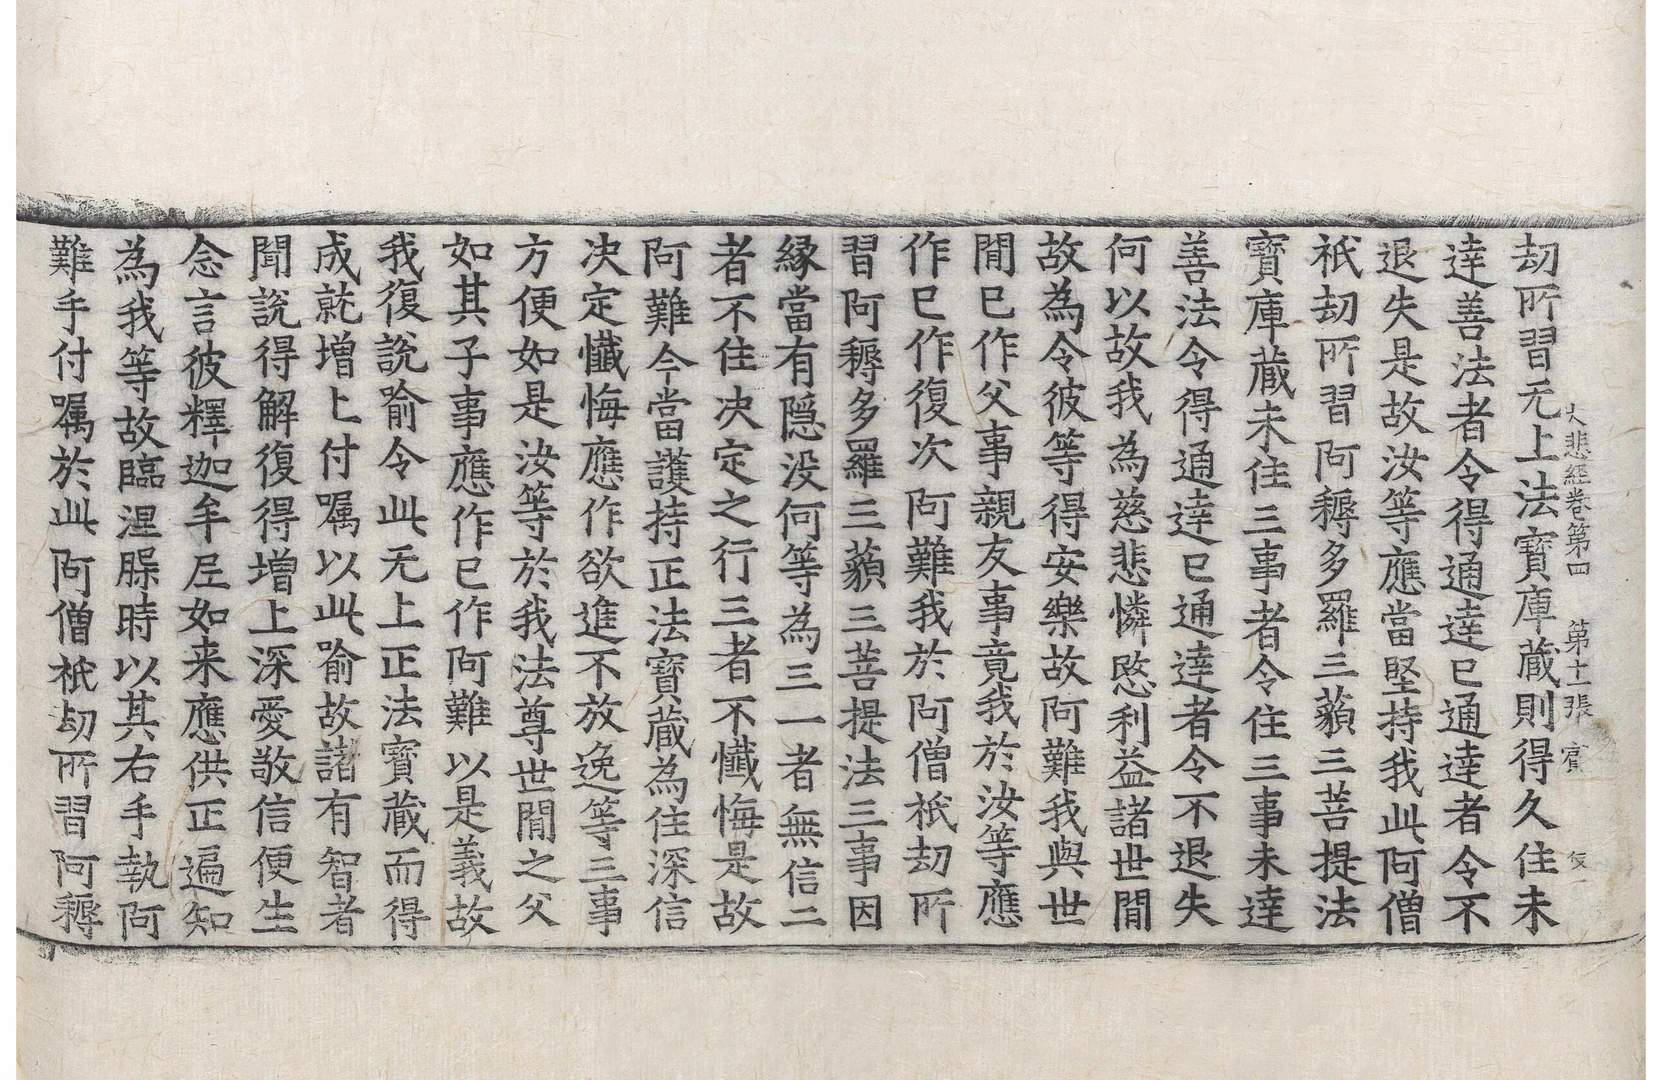 大悲經卷第四　第十一張　賓
劫所習无上法寶庫藏則得久住未
達善法者令得通達已通達者令不
退失是故汝等應當堅持我此阿僧
祇劫所習阿耨多羅三藐三菩提法
寶庫藏未住三事者令住三事未達
善法令得通達已通達者令不退失
何以故我為慈悲憐愍利益諸世間
故為令彼等得安樂故阿難我與世
間已作父事親友事竟我於汝等應
作已作復次阿難我於阿僧祇劫所
習阿耨多羅三藐三菩提法三事因
緣當有隱没何等為三一者無信二
者不住决定之行三者不懺悔是故
阿難今當護持正法寶藏為住深信
决定懺悔應作欲進不放逸等三事
方便如是汝等於我法尊世間之父
如其子事應作已作阿難以是義故
我復說喻令此无上正法寶藏而得
成就增上付囑以此喻故諸有智者
聞說得解復得增上深愛敬信便生
念言彼釋迦牟尼如来應供正遍知
為我等故臨涅槃時以其右手執阿
難手付囑於此阿僧祇劫所習阿耨